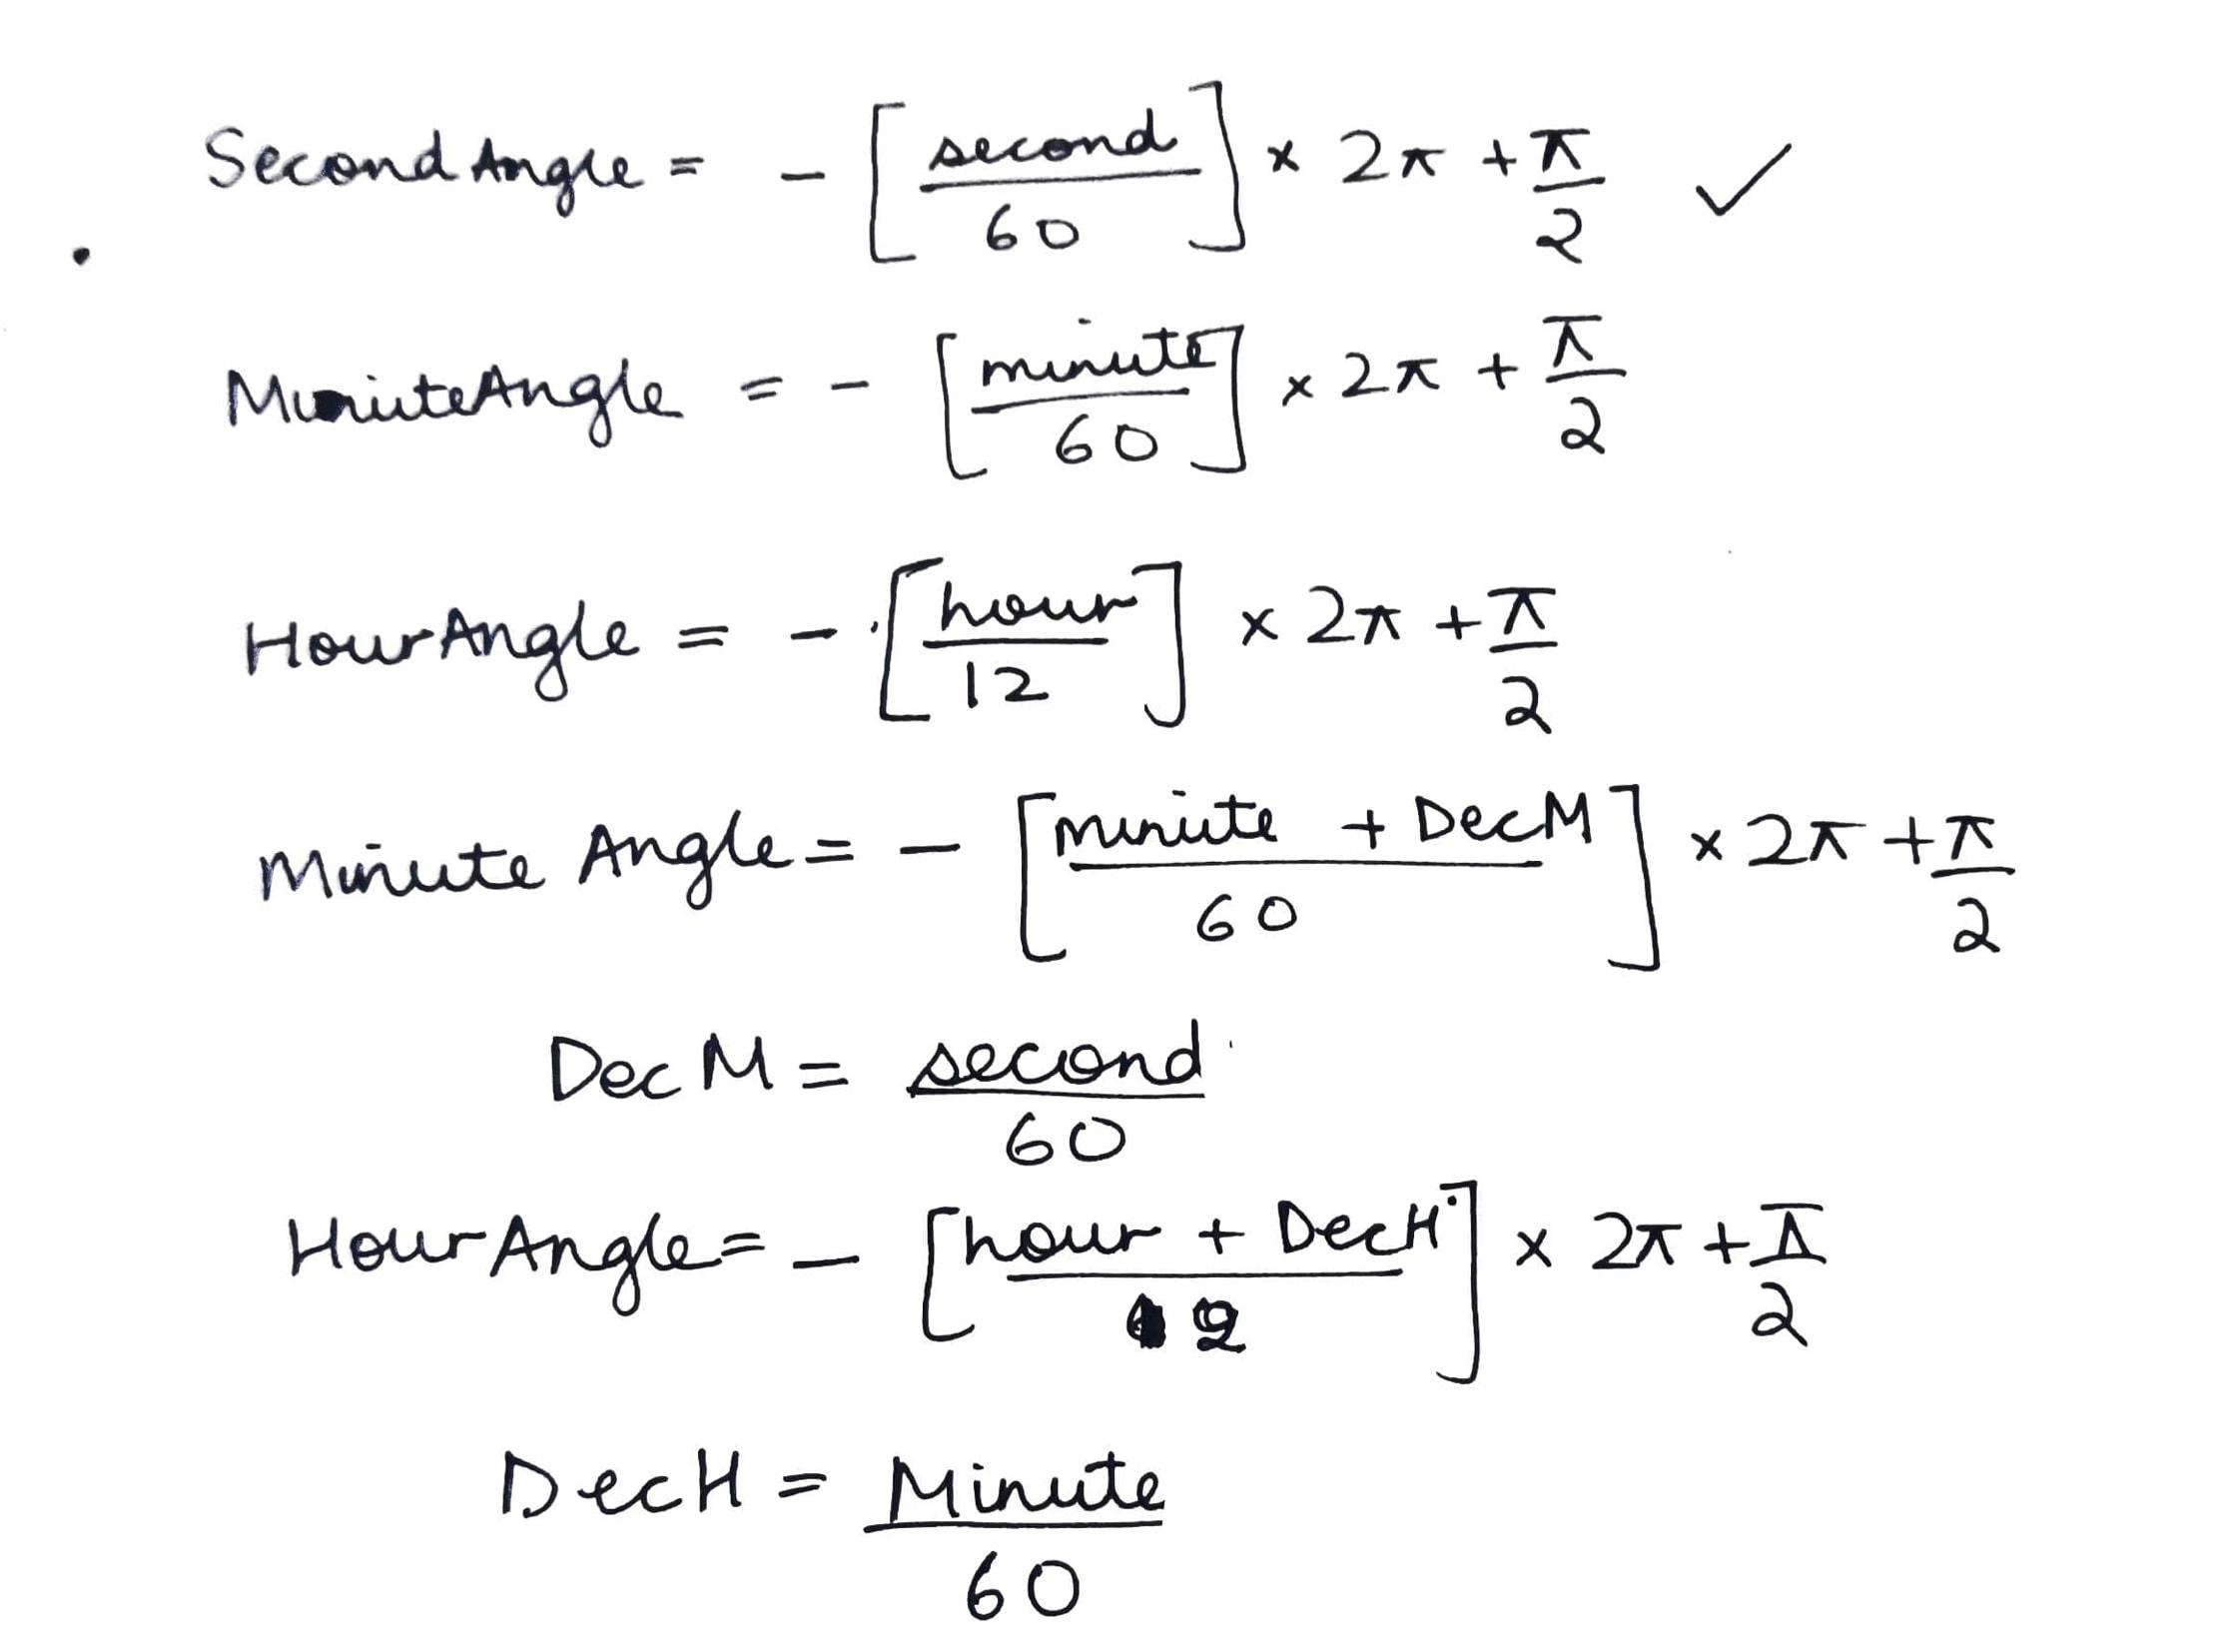 Second Angle = - [second / 60] × 2π + π/2 ✓
MinuteAngle = - [minute / 60] × 2π + π/2
HourAngle = - [hour / 12] × 2π + π/2
Minute Angle = - [minute + DecM / 60] × 2π + π/2
DecM = second / 60
HourAngle = - [hour + DecH / 12] × 2π + π/2
DecH = Minute / 60